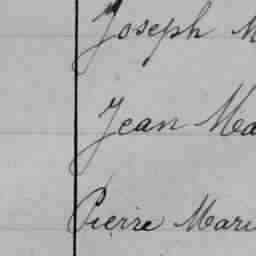 Joseph M
Jean Ma
Pierre Mari